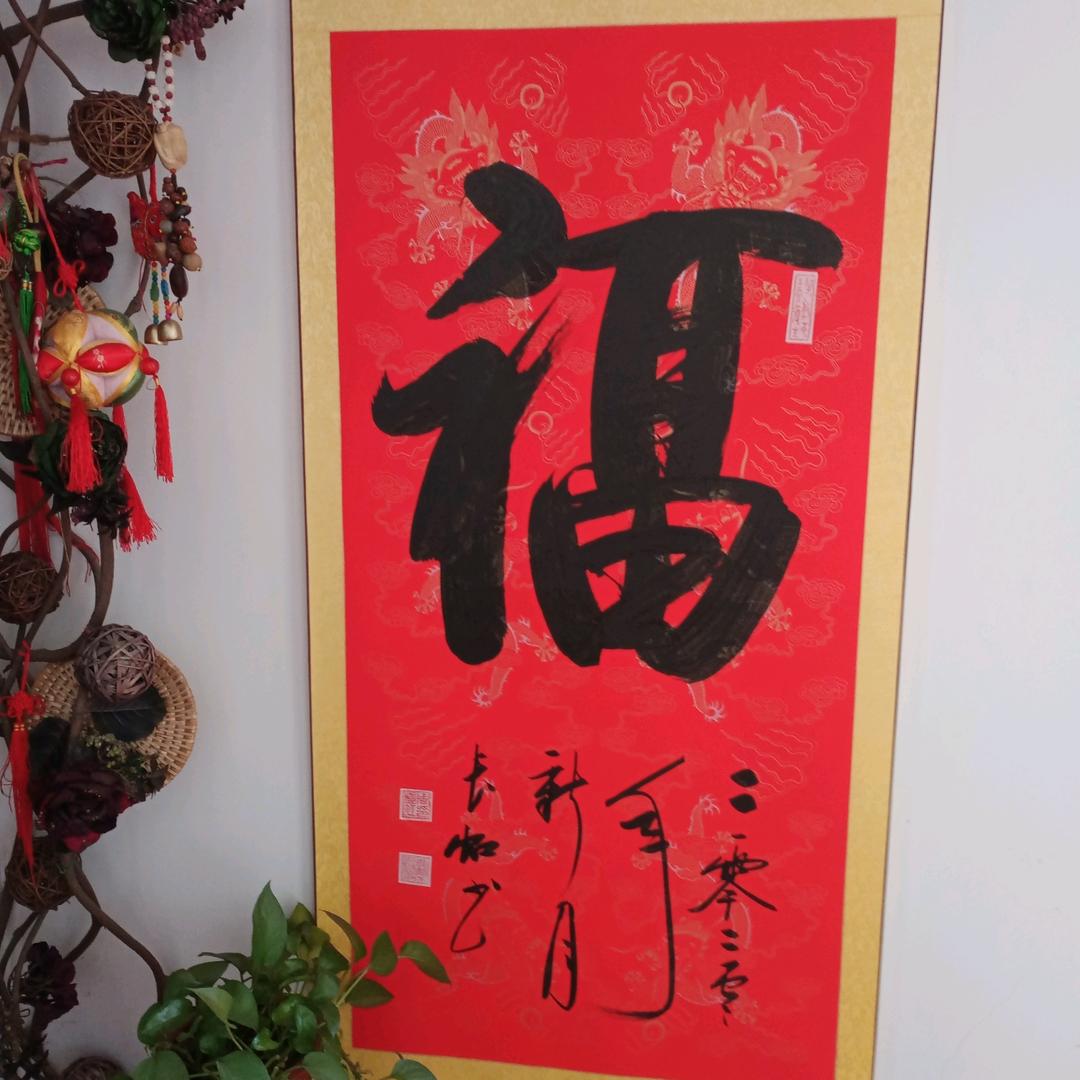 福
二零二零
年
新月
长虹书